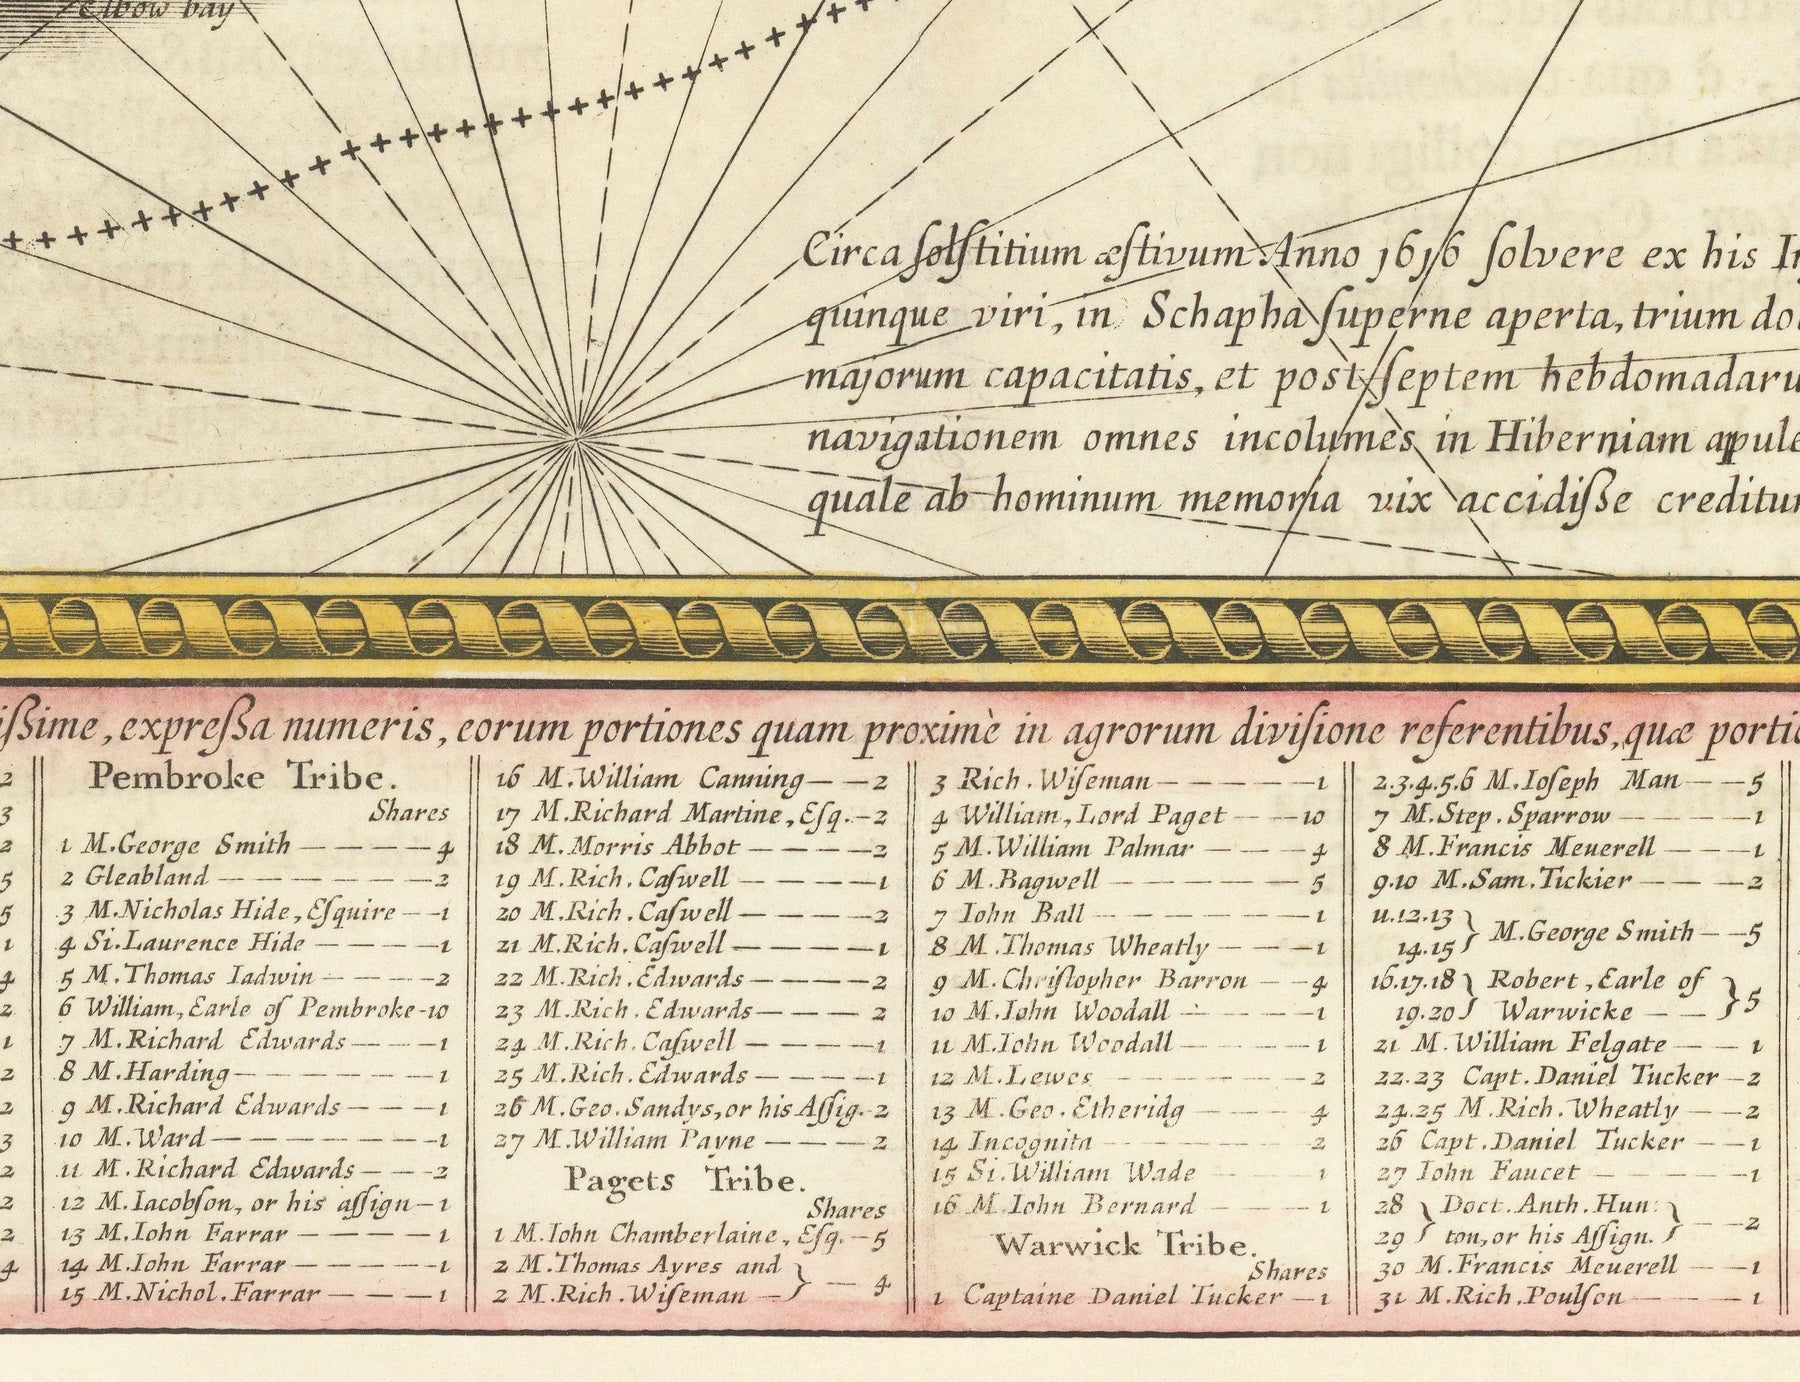 Elbow bay
Circa ſolſtitium æſtivum Anno 1616 ſolvere ex his
quinque viri, in Schapha ſuperne aperta, trium
majorum capacitatis, et post ſeptem
navigationem omnes incolumes in Hiberniam
quale ab hominum memoria vix accidiſse
expreſsa numeris, eorum portiones quam proximè in agrorum diviſione referentibus, quæ
2
3
2
5
5
1
4
2
1
2
2
3
2
2
2
4
Pembroke Tribe.
Shares
1 M. George Smith — — — — 4
2 Gleabland — — — — — 2
3 M. Nicholas Hide, Eſquire — 1
4 Si. Laurence Hide — — — — 1
5 M. Thomas Iadwin — — — — 2
6 William, Earle of Pembroke - 10
7 M. Richard Edwards — — — 1
8 M. Harding — — — — — — 1
9 M. Richard Edwards — — — 1
10 M. Ward — — — — — — 1
11 M. Richard Edwards — — — 2
12 M. Iacobſon, or his aſſign — 1
13 M. Iohn Farrar — — — — 1
14 M. Iohn Farrar — — — — 1
15 M. Nichol. Farrar — — — 1
16 M. William Canning — — 2
17 M. Richard Martine, Eſq. — 2
18 M. Morris Abbot — — — — 2
19 M. Rich. Caſwell — — — — 1
20 M. Rich. Caſwell — — — — 2
21 M. Rich. Caſwell — — — — 1
22 M. Rich. Edwards — — — — 2
23 M. Rich. Edwards — — — — 2
24 M. Rich. Caſwell — — — — 1
25 M. Rich. Edwards — — — — 1
26 M. Geo. Sandys, or his Aſſig. - 2
27 M. William Payne — — — — 2
Pagets Tribe.
Shares
1 M. Iohn Chamberlaine, Eſq. — 5
2 M. Thomas Ayres and
2 M. Rich. Wiſeman — } — 4
3 Rich. Wiſeman — — — — — 1
4 William, Lord Paget — — 10
5 M. William Palmar — — — 4
6 M. Bagwell — — — — — 5
7 Iohn Ball — — — — — — 1
8 M. Thomas Wheatly — — — 1
9 M. Chriſtopher Barron — — 4
10 M. Iohn Woodall — — — — 1
11 M. Iohn Woodall — — — — 1
12 M. Lewes — — — — — — 2
13 M. Geo. Etheridg — — — — 4
14 Incognita — — — — — 2
15 Si. William Wade — 1
16 M. Iohn Bernard — — — — 1
Warwick Tribe.
Shares
1 Captaine Daniel Tucker — 1
2.3.4.5.6 M. Ioſeph Man — — 5
7 M. Step. Sparrow — — — — 1
8 M. Francis Meuerell — — — 1
9.10 M. Sam. Tickier — — — 2
11.12.13
14.15 } M. George Smith — — 5
16.17.18 } Robert, Earle of
19.20 } Warwicke — — } 5
21 M. William Felgate — — 1
22.23 Capt. Daniel Tucker — 2
24.25 M. Rich. Wheatly — — 2
26 Capt. Daniel Tucker — — 1
27 Iohn Faucet — — — — 1
28 } Doct. Anth. Hun:
29 } ton, or his Aſſign. } — — 2
30 M. Francis Meuerell — — 1
31 M. Rich. Poulſon — — — — 1